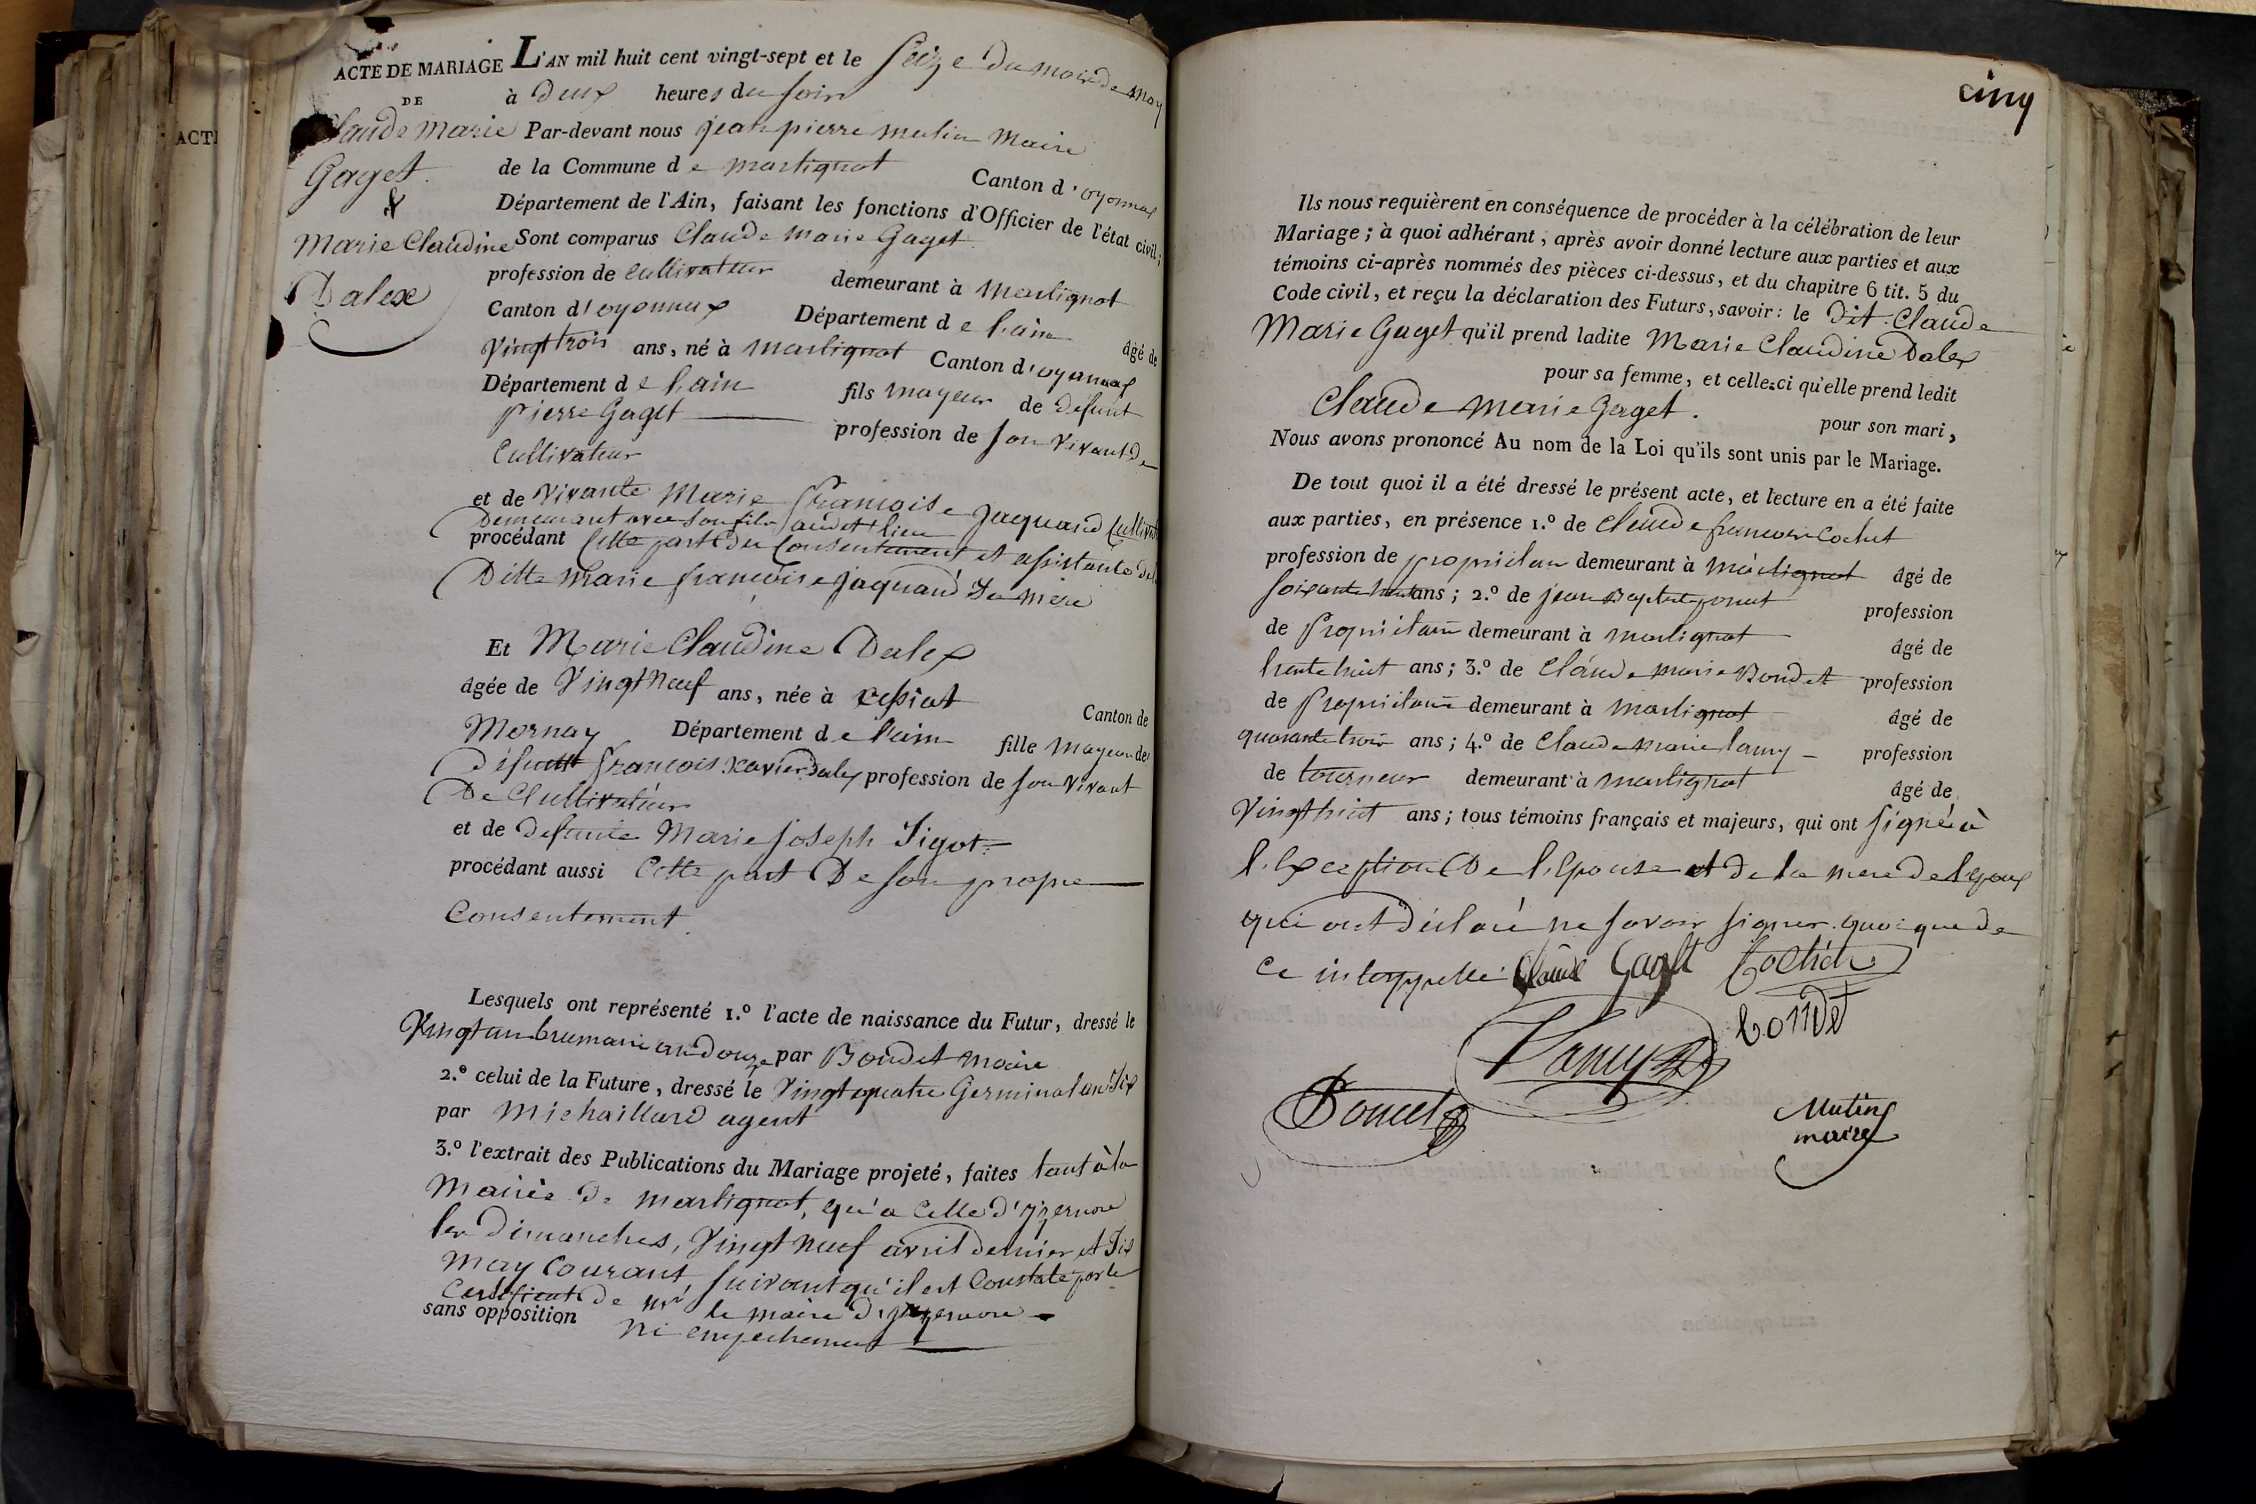 ACTE DE MARIAGE
DE
Claude Marie
Gaget
&
Marie Claudine
Dalex
L'AN mil huit cent vingt-sept et le Seize du mois de May
à deux heures du soir
Par-devant nous jean pierre mutin Maire
de la Commune de martignat Canton d'oyonnax
Département de l'Ain, faisant les fonctions d'Officier de l'état civil;
Sont comparus Claude Marie Gaget
profession de Cultivateur demeurant à Martignat
Canton d'oyonnax Département de l'ain âgé de
Vingt trois ans, né à Martignat Canton d'oyonnax
Département de l'ain fils mayeur de défunt
pierre Gaget profession de son vivant de
Cultivateur
et de vivante Marie françoise jaquand
Demeurant avec son fils audit lieu
procédant Cette part du Consentement et assistante de
Ditte Marie françoise jaquand Sa mere
Et Marie Claudine Dalex
âgée de Vingt Neuf ans, née à cessiat Canton de
Mornay Département de l'ain fille mayeur de
Défunt françois Xavier Dalex profession de son vivant
De Cultivateur
et de defunte Marie joseph Sigot
procédant aussi Cette part De son propre
Consentement.
Lesquels ont représenté 1.º l'acte de naissance du Futur, dressé le
Vingt un brumaire an douze par Bondet maire
2.º celui de la Future, dressé le Vingt quatre Germinal an Six
par Michaillard agent
3.º l'extrait des Publications du Mariage projeté, faites tant à la
Mairie de martignat, qu'a Celle d'yzernore
les dimanches, Vingt Neuf avril dernier et Six
May Courant, suivant qu'il est Constaté par le
Certificat de mr le maire d'yzernore
sans opposition ni empechement
cinq
Ils nous requièrent en conséquence de procéder à la célébration de leur
Mariage; à quoi adhérant, après avoir donné lecture aux parties et aux
témoins ci-après nommés des pièces ci-dessus, et du chapitre 6 tit. 5 du
Code civil, et reçu la déclaration des Futurs, savoir: le dit Claude
Marie Gaget qu'il prend ladite Marie Claudine Dalex
pour sa femme, et celle-ci qu'elle prend ledit
Claude Marie Gaget. pour son mari,
Nous avons prononcé Au nom de la Loi qu'ils sont unis par le Mariage.
De tout quoi il a été dressé le présent acte, et lecture en a été faite
aux parties, en présence 1.º de Claude francois Cochet
profession de proprietaire demeurant à Martignat âgé de
soixante ans; 2.º de jean Baptiste profession
de Proprietaire demeurant à martignat âgé de
trente huit ans; 3.º de Claude marie Bondet profession
de Proprietaire demeurant à martignat âgé de
quarante trois ans; 4.º de Claude marie lamy profession
de tourneur demeurant à martignat âgé de
Vingt huit ans; tous témoins français et majeurs, qui ont signé à
l'exception De l'epouse et de la mere de l'epoux
qui ont déclaré ne savoir signer quoique de
ce interppellé. Claude Gaget Cochet
Bondet
Lamy
Poncet
Mutin
maire